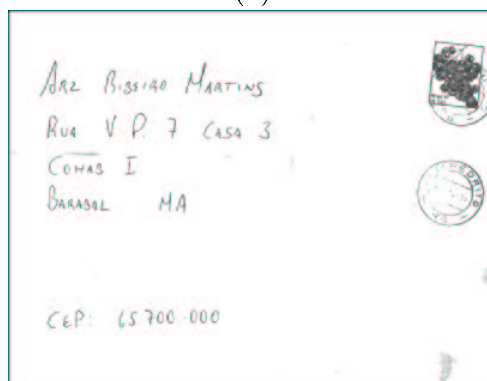 ARZ RIBEIRO MARTINS
RUA V P. 7 CASA 3
COHAB I
BARABAL MA
CEP: 65700-000